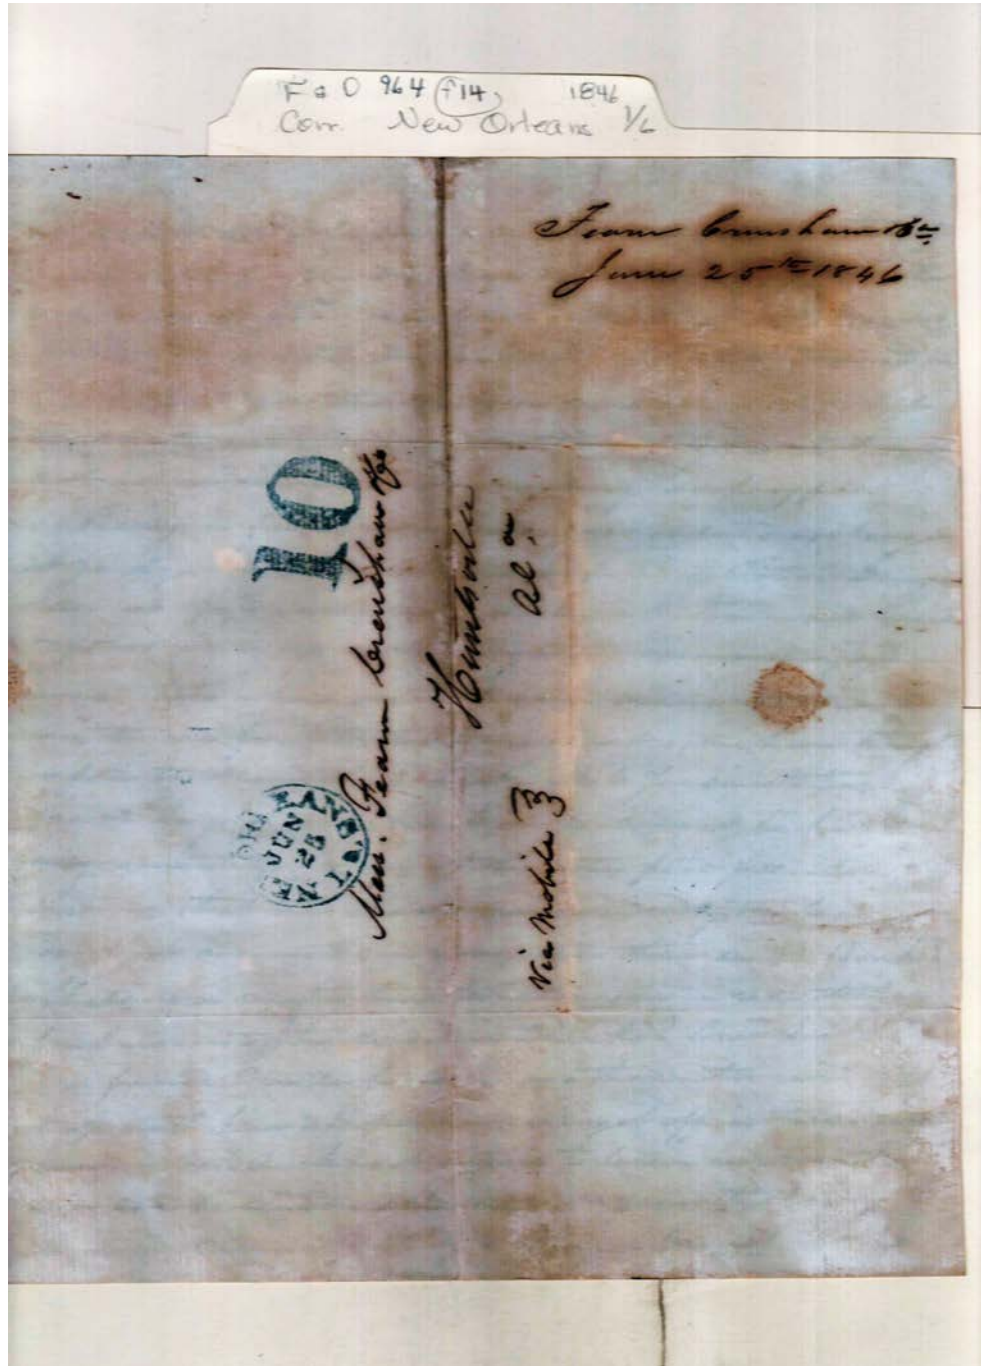 F & D 964 f14, 1846
Corr. New Orleans 1/6
Fearn Crenshaw & Co
June 25th 1846
10
NEW ORLEANS LA.
JUN
25
Mess. Fearn Crenshaw & Co
Huntsville
Ala.
Via Mobile